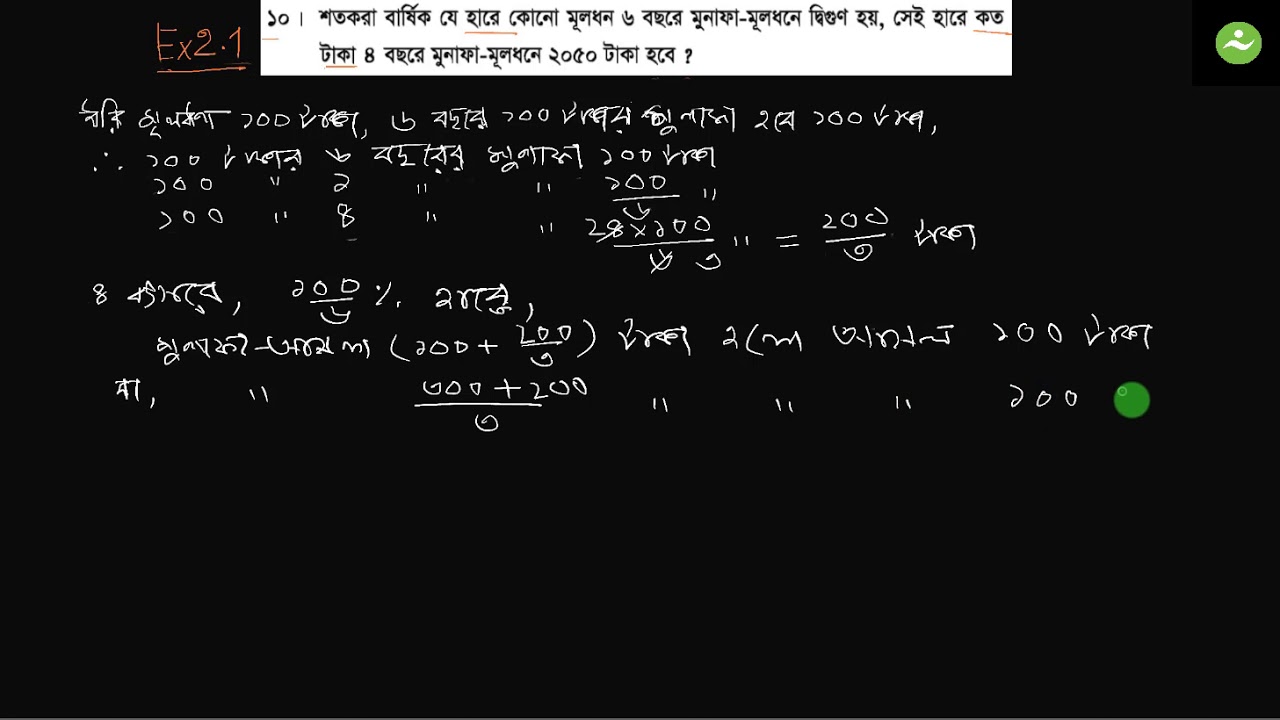 Ex2.1
১০। শতকরা বার্ষিক যে হারে কোনো মূলধন ৬ বছরে মুনাফা-মূলধনে দ্বিগুণ হয়, সেই হারে কত
টাকা ৪ বছরে মুনাফা-মূলধনে ২০৫০ টাকা হবে ?
ধরি মূলধন ১০০ টাকা, ৬ বছরে ১০০ টাকার মুনাফা হবে ১০০ টাকা,
∴ ১০০ টাকার ৬ বছরের মুনাফা ১০০ টাকা
১০০ " ১ " " ১০০/৬ "
১০০ " ৪ " " ২৪×১০০/৬ ৩ " = ২০০/৩ টাকা
৪ বছরে, ১০০/৬ %
মুনাফা-আসল (১০০ + ২০০/৩) টাকা হলে আসল ১০০ টাকা
বা, " ৩০০ + ২০০/৩ " " " ১০০